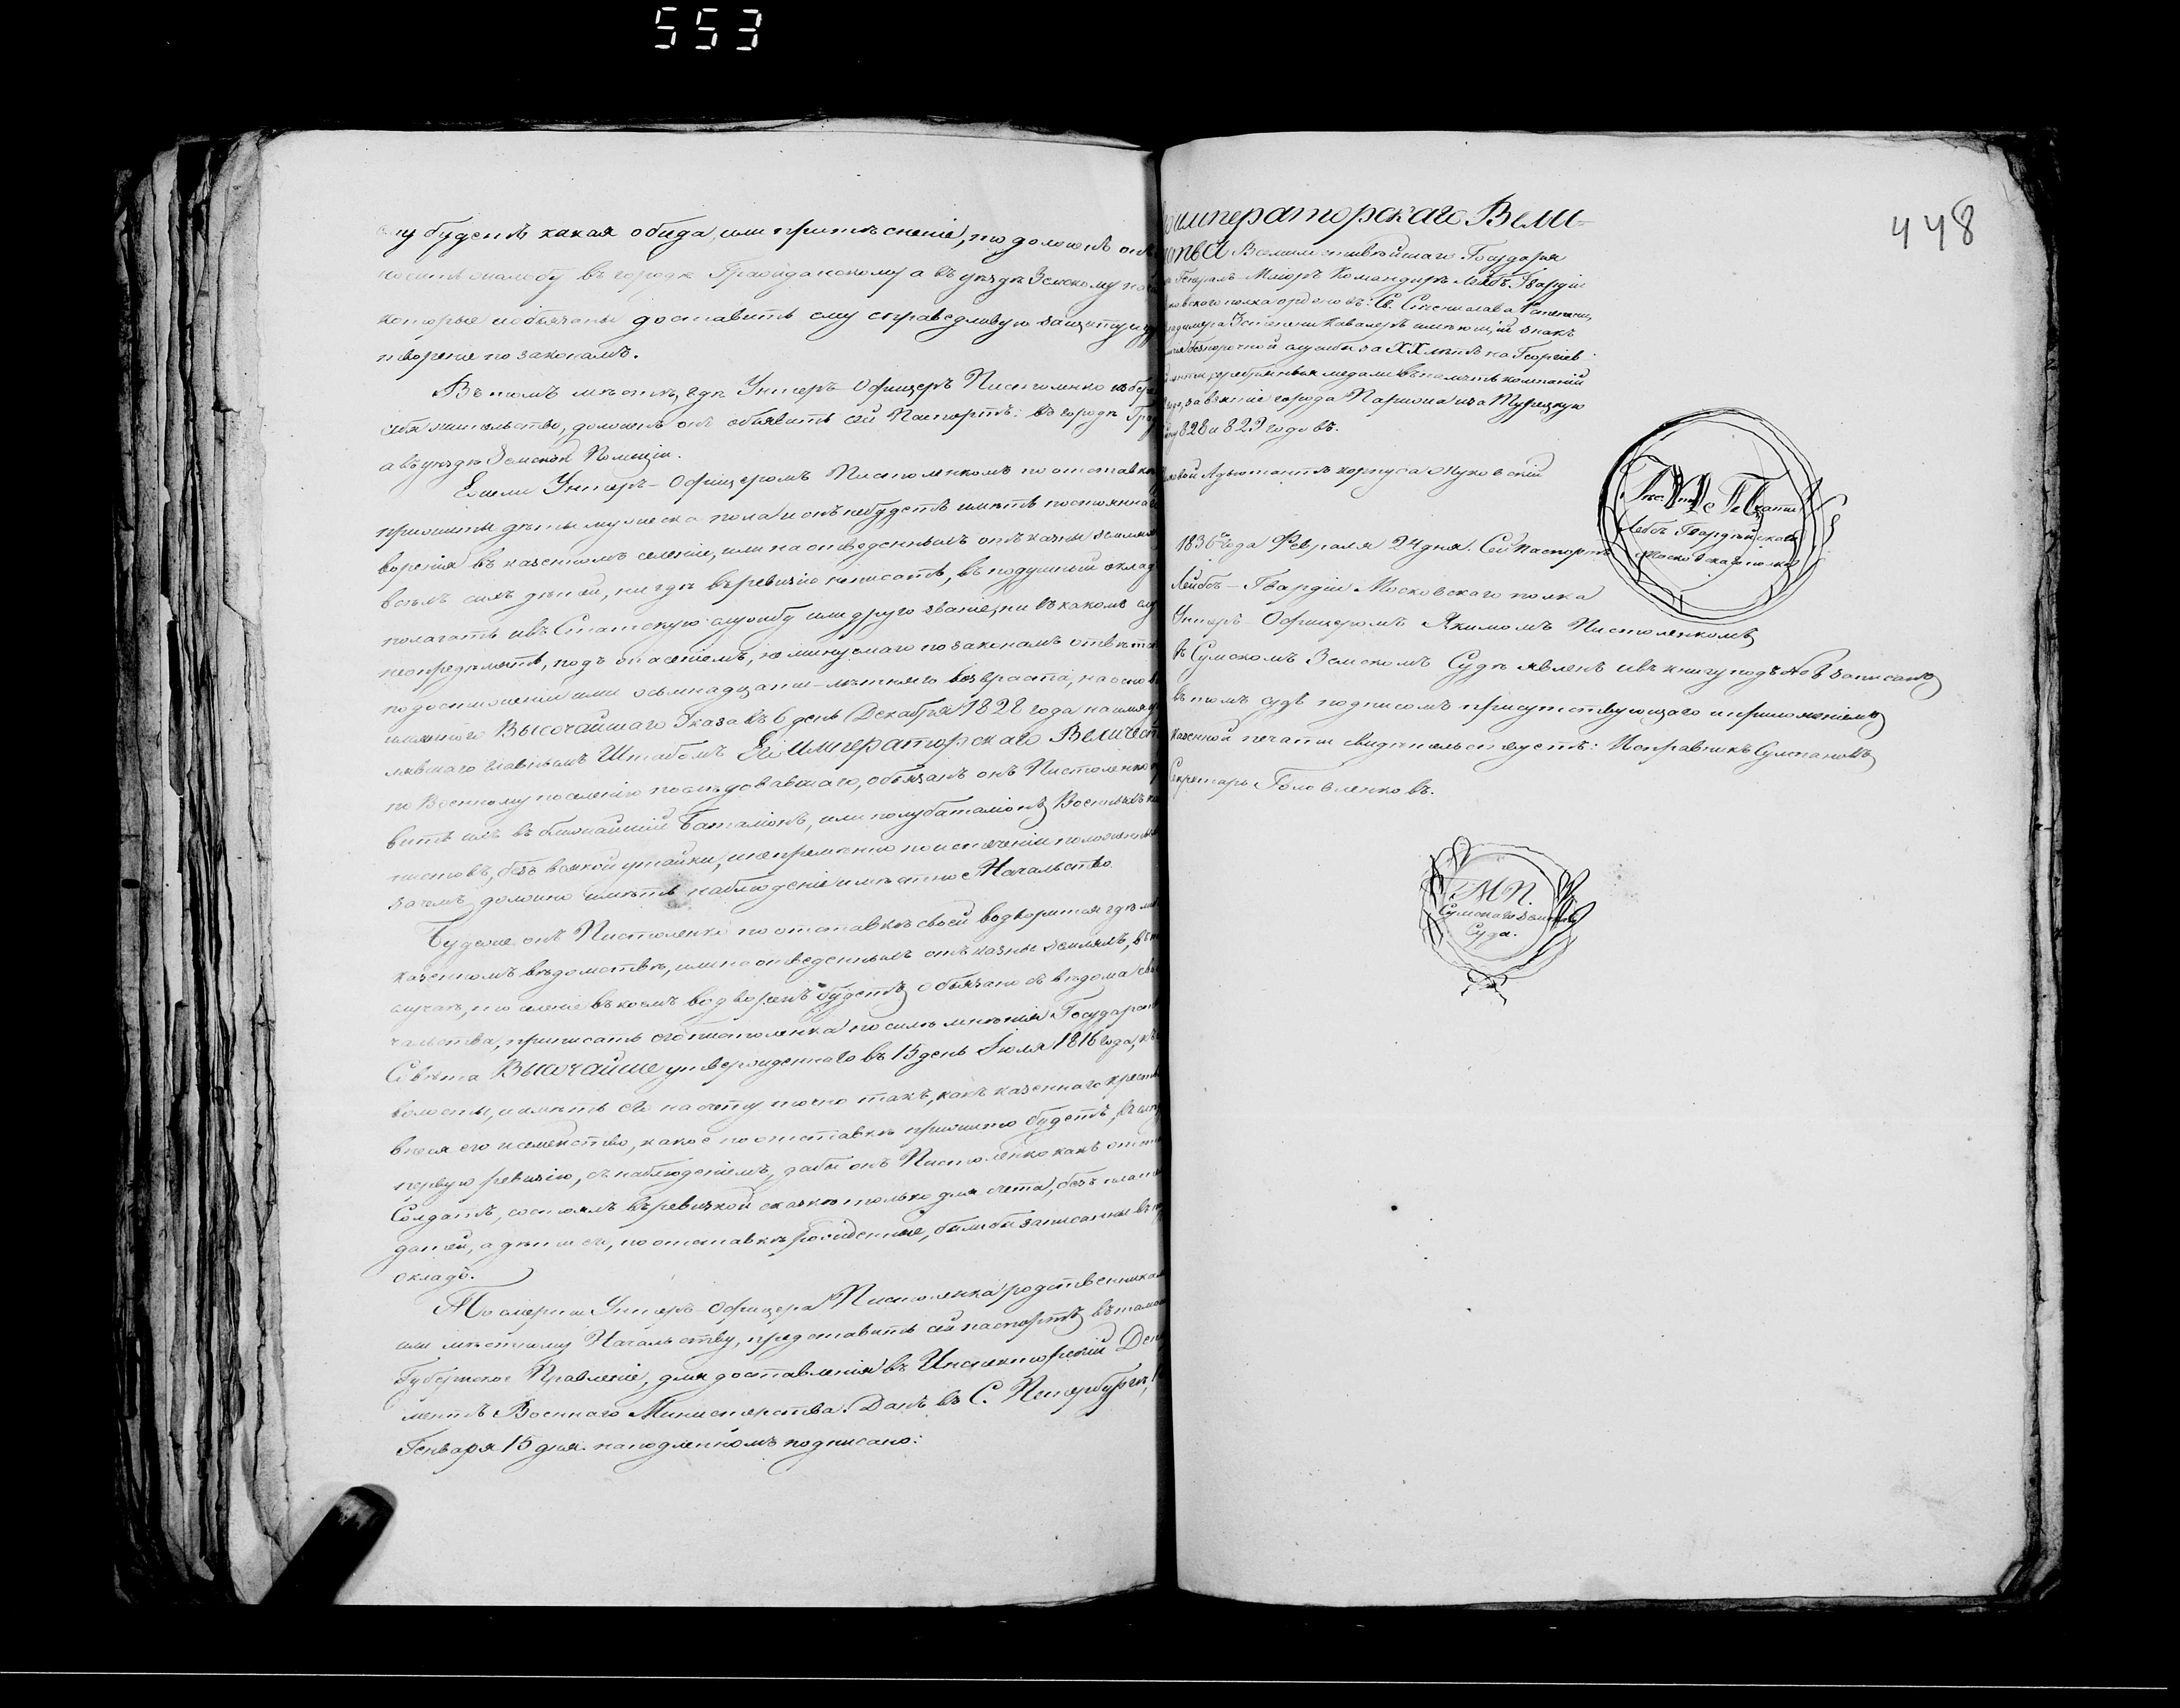 553
448
ему будетъ какая обида, или притѣсненіе, то долженъ онъ
жалобу въ городѣ Гражданскому а въ уѣздѣ Земскому
которые обязаны доставить ему справедливую защиту и
творение по законамъ.
Въ томъ мѣстѣ, гдѣ Унтеръ-Офицеръ Пистоленко избере
себѣ жительство, долженъ онъ объявить сей Паспортъ: въ городѣ Гра
а въ уѣздѣ Земской Полиціи.
Ежели Унтеръ-Офицеромъ Пистоленкомъ по отставкѣ
прижиты дѣти мужеска пола и онъ небудетъ имѣть постоянна
воренія въ казенномъ селеніе, или на отведенныхъ отъ казны земля
всѣхъ сихъ дѣтей, нигдѣ въ ревизію неписать, въ подушный оклад
полагать ивъ Статскую службу или друго званіе, ни въ какомъ слу
неопредѣлять, подъ опасеніемъ, неминуемаго по законамъ отвѣтст
по достиженіи ими осьмнадцати-лѣтняго возвраста, на основ
имяннаго Высочайшаго Указа въ 6 день Декабря 1828 года на имя у
лявшаго Главнымъ Штабомъ Его Императорскаго Величест
по Военному поселенію последовавшаго, обязанъ онъ Пистоленко
вить ихъ въ ближайшій Баталіонъ, или полубаталіонъ Военныхъ кан
тонистовъ, безъ всякой утайки, инепременно по истеченіи положенны
зачемъ должно имѣть наблюденіе и мѣстное Начальство.
Буде же онъ Пистоленко по отставкѣ своей водворится гдѣ ли
казенномъ вѣдомствѣ, или на отведенныхъ отъ казны земляхъ, въ т
случаѣ, то селеніе въ коемъ водворенъ будетъ обязано съ вѣдома
чальства, приписать его Пистоленка по силѣ мненія Государст
Совѣта Высочайше утвержденнаго въ 15 день Іюля 1816 года, къ
волости, и имѣть его на счету точно такъ, какъ казеннаго крест
внеся его и семейство, какое по отставкѣ прижито будетъ, въ
первую ревизію, съ наблюденіемъ, дабы онъ Пистоленко какъ отст
Солдатъ, состоялъ въ ревизкой сказкѣ только для счета, безъ плат
датей, а дѣти его, по отставкѣ рожденные, были бы записаны въ
окладъ.
По смерти Унтеръ-Офицера Пистоленка родственника
или мѣстному Начальству, представить сей паспортъ въ тамош
Губернское Правленіе, для доставленія въ Инспекторскій Деп
ментъ Военнаго Министерства. Данъ въ С. Петербургѣ,
Генваря 15 дня. на подленномъ подписано:
Императорскаго Вели-
ства Всемилостивѣйшаго Государя
Генералъ Маіоръ Командиръ Лейбъ-Гвардіи
ковского полка орденовъ: Св. Станислава 1 степени,
ладимера 3 степени Кавалеръ имѣющій знакъ
безпорочной службы за XX лѣтъ на Георгіев-
серебрянныя медали въ память компаній
за взятіе города Парижа и за Турецкую
828 и 829 годовъ.
Адъютантъ корпуса Жуковскій
Лейбъ Гвардѣйскаго
Московскаго полка
1836 года Февраля 24 дня. Сей паспортъ
Лейбъ-Гвардіи Московскаго полка
Унтеръ-Офицеромъ Якимомъ Пистоленкомъ
въ Сумскомъ Земскомъ Судѣ явленъ ивъ книгу подъ № записанъ
въ томъ судѣ подписомъ присутствующаго и приложеніемъ
казенной печати свидѣтельствуетъ: Исправникъ
Секретарь Головленковъ.
М П.
Сумскаго Земскаго
Суда.